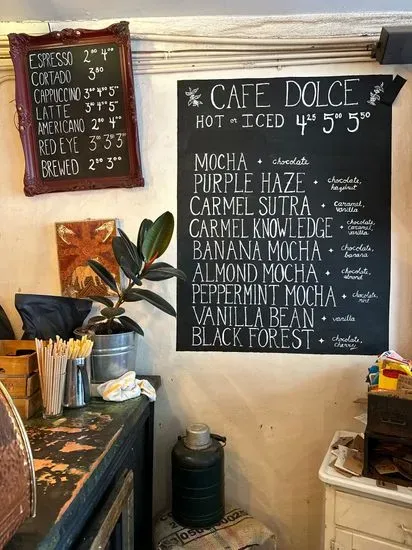 ESPRESSO 2⁰⁰ 4⁰⁰
CORTADO 3⁸⁰
CAPPUCCINO 3⁵⁰ 4⁵⁰ 5⁰⁰
LATTE 3⁵⁰ 4⁵⁰ 5⁰⁰
AMERICANO 2⁰⁰ 4⁰⁰
RED EYE 3⁰⁰ 3²⁵ 3⁵⁰
BREWED 2⁵⁰ 3⁰⁰
CAFE DOLCE
HOT or ICED 4²⁵ 5⁰⁰ 5⁵⁰
MOCHA + chocolate
PURPLE HAZE + chocolate, hazelnut
CARMEL SUTRA + caramel, vanilla
CARMEL KNOWLEDGE + chocolate, caramel, vanilla
BANANA MOCHA + chocolate, banana
ALMOND MOCHA + chocolate, almond
PEPPERMINT MOCHA + chocolate, mint
VANILLA BEAN + vanilla
BLACK FOREST + chocolate, cherry